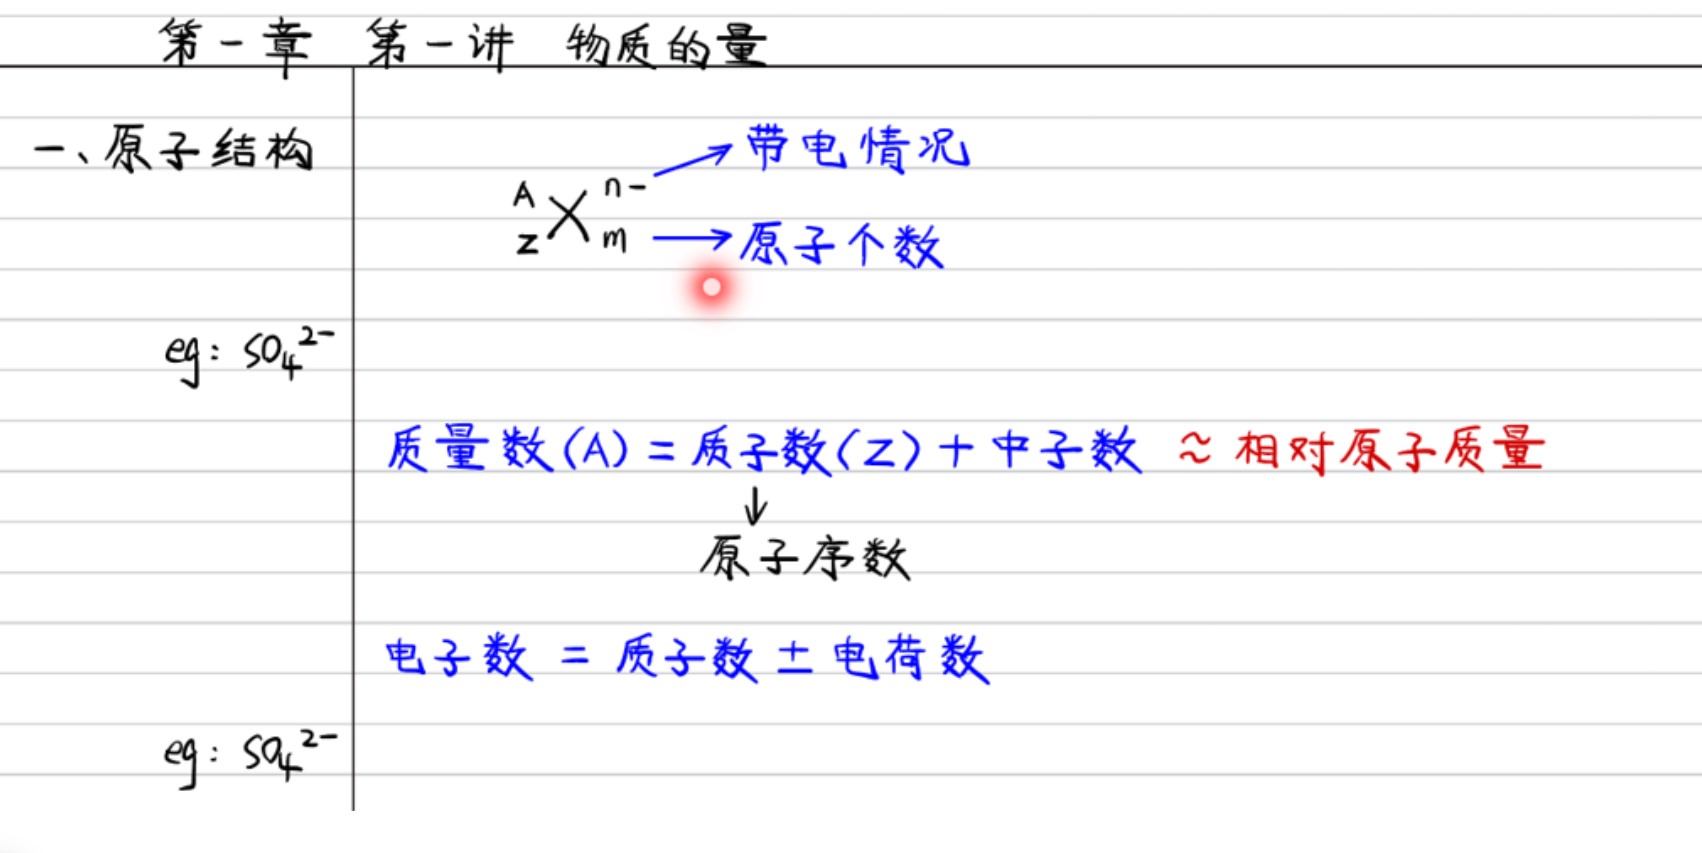 第一章 第一讲 物质的量
一、原子结构
A Z X n- m
→带电情况
→原子个数
eg: SO₄²⁻
质量数(A) = 质子数(Z) + 中子数 ≈ 相对原子质量
↓
原子序数
电子数 = 质子数 ± 电荷数
eg: SO₄²⁻